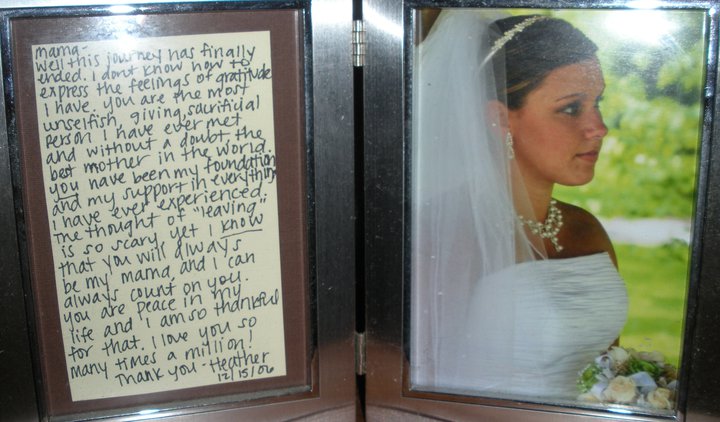 mama-
Well this journey has finally
ended. I dont know how to
express the feelings of gratitude
I have. You are the most
unselfish, giving, sacrificial
person I have ever met
and without a doubt the
best mother in the world.
you have been my foundation
and my support in everything
I have ever experienced.
The thought of "leaving"
is so scary yet I know
that you will always
be my mama and I can
always count on you.
you are peace in my
life and I am so thankful
for that. I love you so
many times a million!
Thank you - Heather
12/15/06